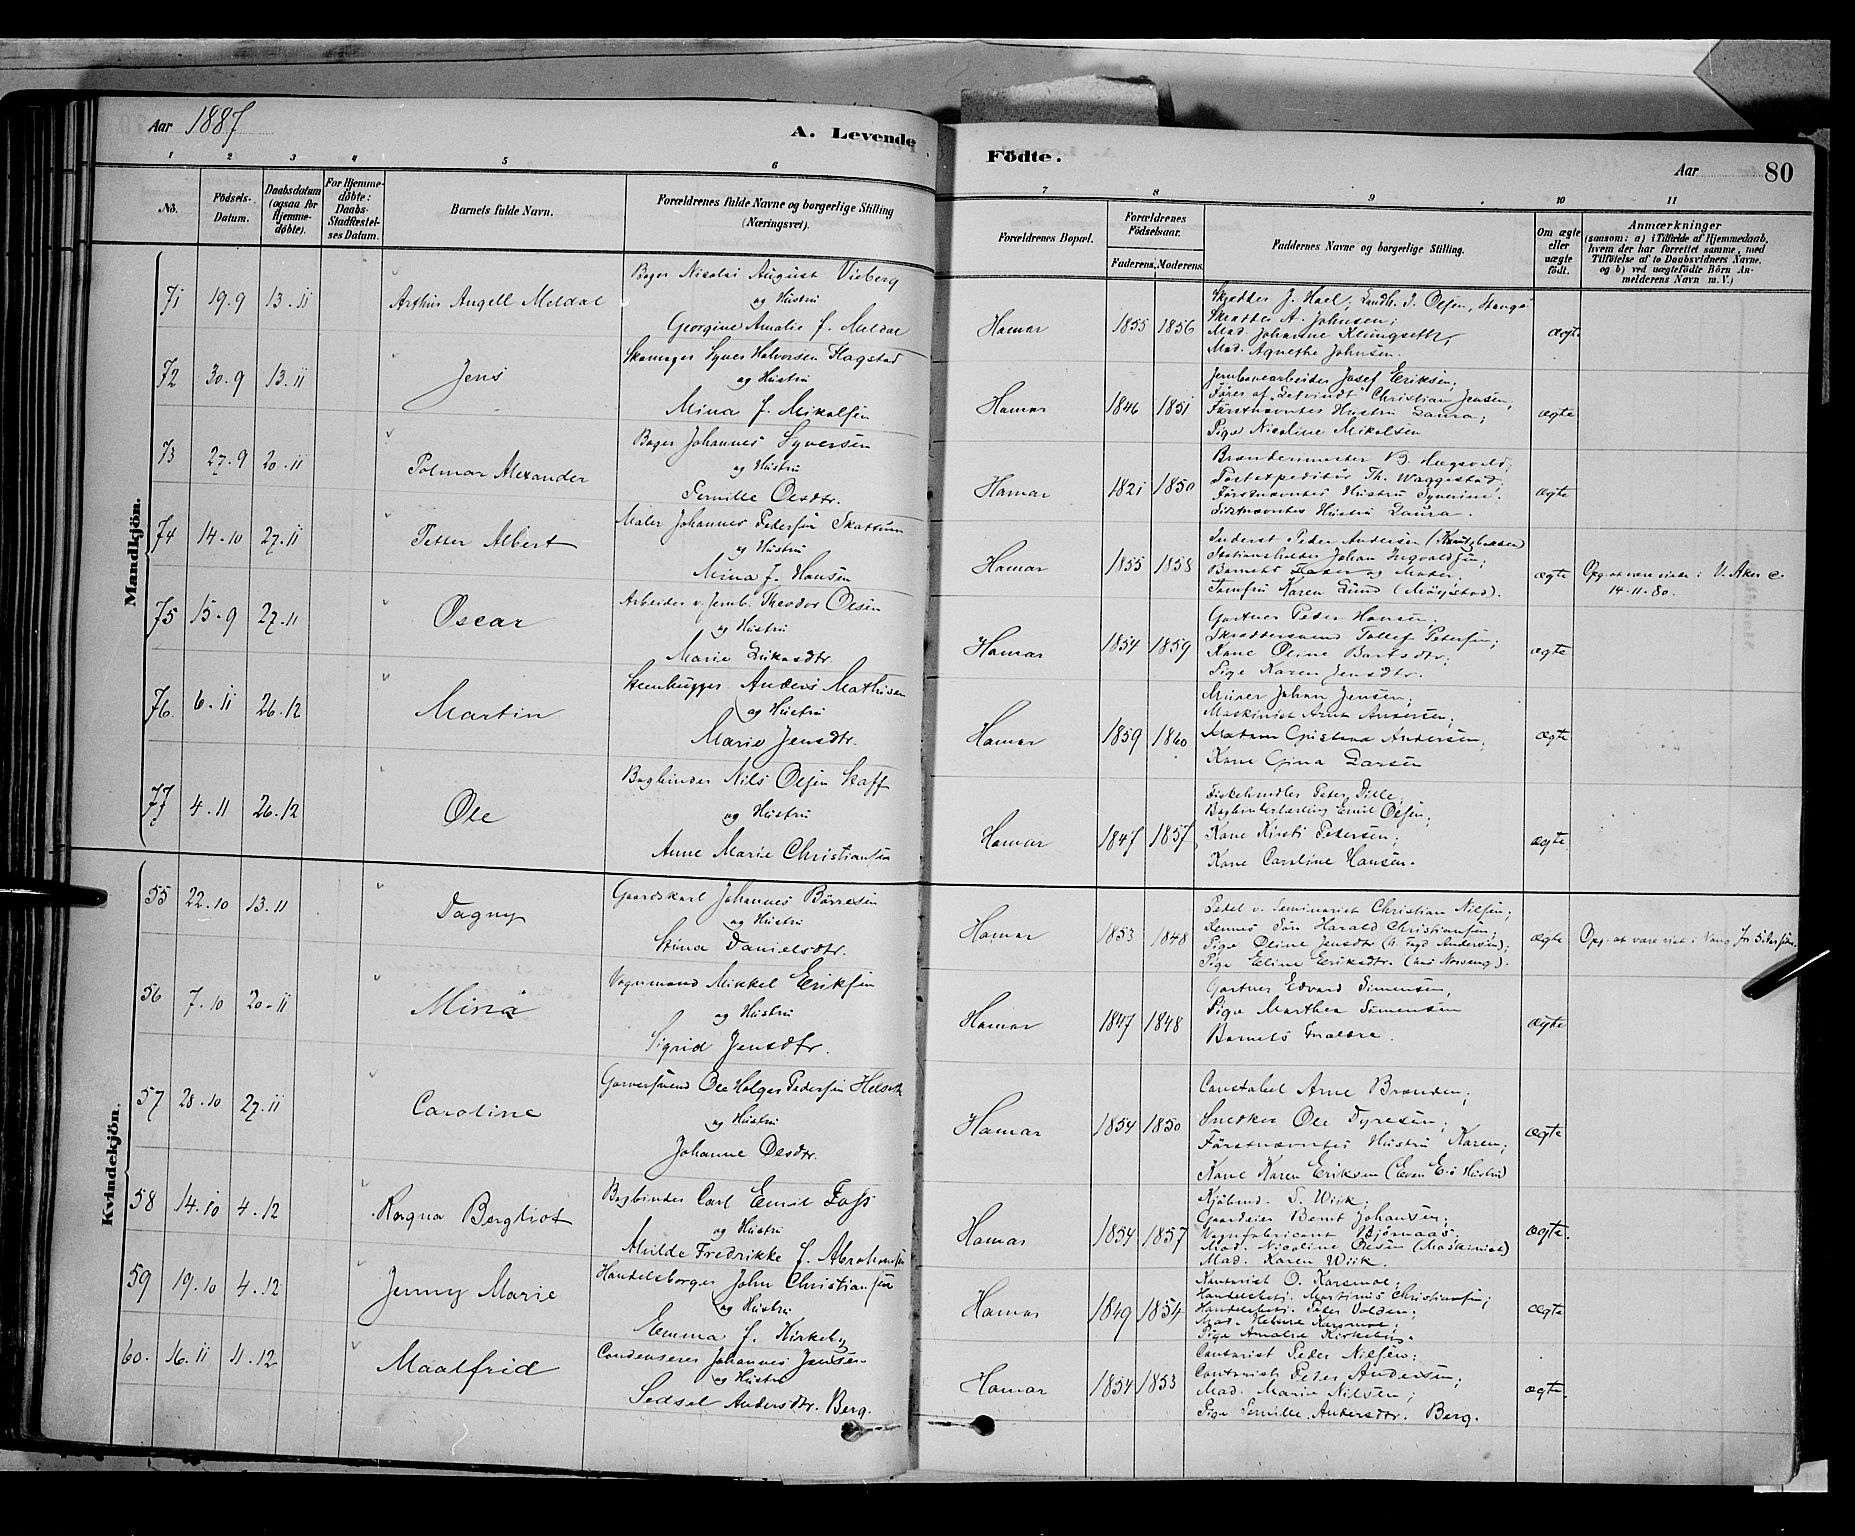 Aar 1887
A. Levende
Födte.
Aar
80
1 2 3 4 5 6 7 8 9 10 11
No.
Födsels-
Datum.
Daabsdatum
(ogsaa for
Hjemme-
døbte).
For Hjemme-
døbte:
Daabs-
Stadfæstel-
ses Datum.
Barnets fulde Navn.
Forældrenes fulde Navne og borgerlige Stilling
(Næringsvei).
Forældrenes Bopæl.
Forældrenes
Födselsaar.
Faderens, Moderens,
Faddernes Navne og borgerlige Stilling.
Om ægte
eller
uægte
födt.
Anmærkninger
(saasom: a) i Tilfælde af Hjemmedaab,
hvem der har forrettet samme, med
Tilföielse af to Daabsvidners Navne,
og b) ved uægtefödte Börn An-
melderens Navn m. V.)
Mandkjön.
71 19.9 13.11 Arthur Angell Meldal
Bager Nicolai August Vieberg
og Hustru
Georgine Amalie f. Meldal
Hamar 1855 1856
Skrædder J. Hoel; Landh. I. Olsen, Stange
Skrædder A. Johnsen;
Mad. Johanne Klungseth,
Mad. Agnethe Johnsen.
ægte
72 30.9 13.11 Jens
Skomager Syver Halvorsen Flagstad
og Hustru
Mina f. Mikalsen
Hamar 1846 1851
Jernbanearbeider Josef Eriksen;
Förer af Christian Jensen,
Förstnævntes Hustru Laura;
Pige Nicoline Mikalsen
ægte
73 27.9 20.11 Polmar Alexander
Bager Johannes Syversen
og Hustru
Pernille Olsdtr.
Hamar 1821 1850
Brænderimester B. Hegsvold;
Postexpeditör Th. Waggestad,
Förstnævntes Hustru Syverine.
Sistnævntes Hustru Laura.
ægte
74 14.10 27.11 Petter Albert
Maler Johannes Pedersen Skattum
og Hustru
Mina f. Hansen
Hamar 1855 1858
Inderst Peder Andersen
Stationsholder Johan Ingvaldsen;
Barnets Fader og Moder;
Jomfru Karen Lund
ægte
Opg. at være viede i V. Aker e.
14-11-80.
75 15.9 27.11 Oscar
Arbeider v. Jernb. Theodor Olsen
og Hustru
Marie Lukasdtr.
Hamar 1854 1859
Gartner Peder Hansen;
Skræddersvend Tollef Petersen;
Kone Oline Bartsdtr;
Pige Karen Jensdtr.
ægte
76. 6.11 26.12 Martin
Steenhugger Anders Mathisen
og Hustru
Marie Jensdtr.
Hamar 1859 1860
Murer Johan Jensen;
Maskinist Arnt Andersen;
Madam Andersen;
Kone Gina Larsen
ægte
77 4.11 26.12 Ole
Bogbinder Nils Olsen Skaff
og Hustru
Anne Marie Christiansen
Hamar 1847 1857
Fiskehandler Peter Dille,
Bogbinderlærling Emil Olsen;
Kone Kirsti Petersen;
Kone Caroline Hansen.
ægte
Kvindekjön.
55 22.10 13.11 Dagny
Gaardskarl Johannes Börresen
og Hustru
Stina Danielsdtr.
Hamar 1853 1848
Pedel v. Seminariet Christian Nilsen;
Sammes Sön Harald Christiansen;
Pige Oline Jensdtr
Pige Eline Eriksdtr. (hos Norseng).
ægte
Opg. at være viet i Vang for 5 Aar siden.
56 7.10 20.11 Mina
Vognmand Mikkel Eriksen
og Hustru
Sigrid Jensdtr.
Hamar 1847 1848
Gartner Edvard Simensen,
Pige Marthea Simensen
Barnets Forældre.
ægte
57 28.10 27.11 Caroline
Garversvend Ole Holger Pedersen
og Hustru
Johanne Olsdtr.
Hamar 1854 1850
Constabel Arne Brænden;
Snedker Ole Dyresen;
Förstnævntes Hustru Karen;
Kone Karen Eriksen (Even E.s Hustru)
ægte
58 14.10 4.12 Ragna Bergliot
Bogbinder Carl Emil Foss
og Hustru
Alvilde Fredrikke f. Abrahamsen
Hamar 1854 1857
Kjöbmd. S. Wiik;
Gaardeier Bernt Johansen;
Vognfabricant Björnaas;
Mad. Nicoline Olsen (Maskinist)
Mad. Karen Wiik.
ægte.
59 19.10 4.12 Jenny Marie
Handelsborger John Christiansen
og Hustru
Emma f. Kirkeby
Hamar 1849 1854
Kontorist O. Karsmoe;
Handelsbetj. Martinus Christiansen;
Handelsbetj. Peter Volden;
Mad. Helene Karsmoe;
Pige Amalie Kirkeby.
ægte
60. 16.11 4.12 Maalfrid
Condenserer Johannes Jensen
og Hustru
Sedsel Andersdtr. Berg.
Hamar 1854 1853
Contorist Peder Nilsen;
Contorist Peder Andersen;
Mad. Marie Nilsen;
Pige Pernille Andersdtr. Berg.
ægte.